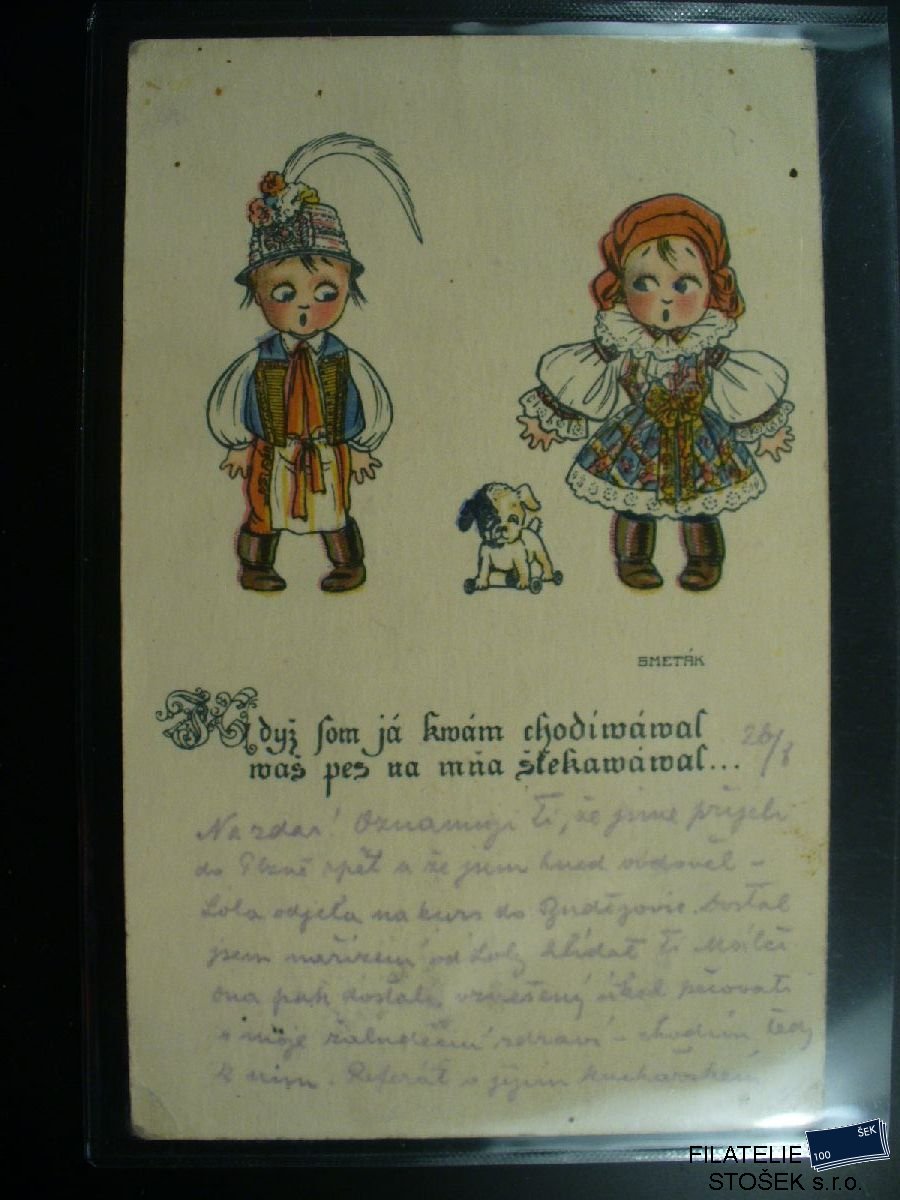 SMETÁK
Když som já kwám chodíwáwal
waš pes na mňa štekawáwal...
26/8
Nazdar! Oznamuji Ti, že jsme přijeli
do Plzně zpět a že jsem hned ovdověl –
Lola odjela na kurs do Budějovic. Dostal
jsem nařízení od Loly hlídat Ti
ona pak dostala vznešený úkol pečovati
o moje žaludeční zdraví – chodím tedy
k nim. Referát o jejím kuchařském
FILATELIE
STOŠEK s.r.o.
100
ŠEK